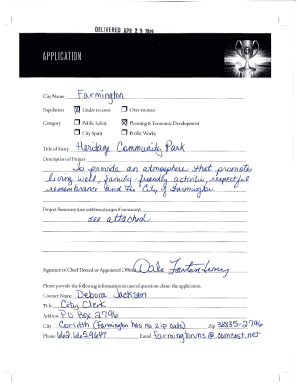 DELIVERED APR 25
APPLICATION
City Name Farmington
Population ☒ Under 10,000 ☐ Over 10,000
Category ☐ Public Safety ☒ Planning & Economic Development
☐ City Spirit ☐ Public Works
Title of Entry Heritage Community Park
Description of Project
To provide an atmosphere that promotes
living well, family-friendly activities, respectful
remembrance and the City of Farmington
Project Summary (use additional pages if necessary)
see attached
Signature of Chief Elected or Appointed Official Dale
Please provide the following information in case of questions about the application.
Contact Name Debora Jackson
Title City Clerk
Address PO Box 2796
City Corinth (Farmington has no zip code) Zip 38835-2796
Phone 662.665.9647 Email farmington.ms@comcast.net